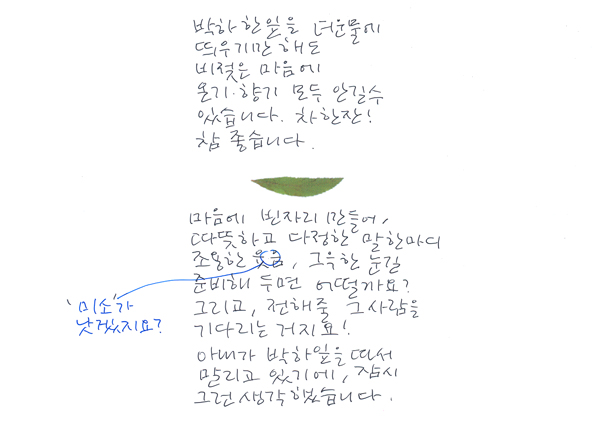 박하 한잎을 더운물에
띄우기만 해도
비젖은 마음에
온기·향기 모두 안길수
있습니다. 차한잔!
참 좋습니다.
마음에 빈자리 만들어,
따뜻하고 다정한 말한마디
조용한 웃음, 그윽한 눈길
준비해 두면 어떨까요?
'미소'가
낫겠지요?
그리고, 전해줄 그사람을
기다리는 거지요!
아내가 박하잎을 따서
말리고 있기에, 잠시
그런 생각 해봤습니다.